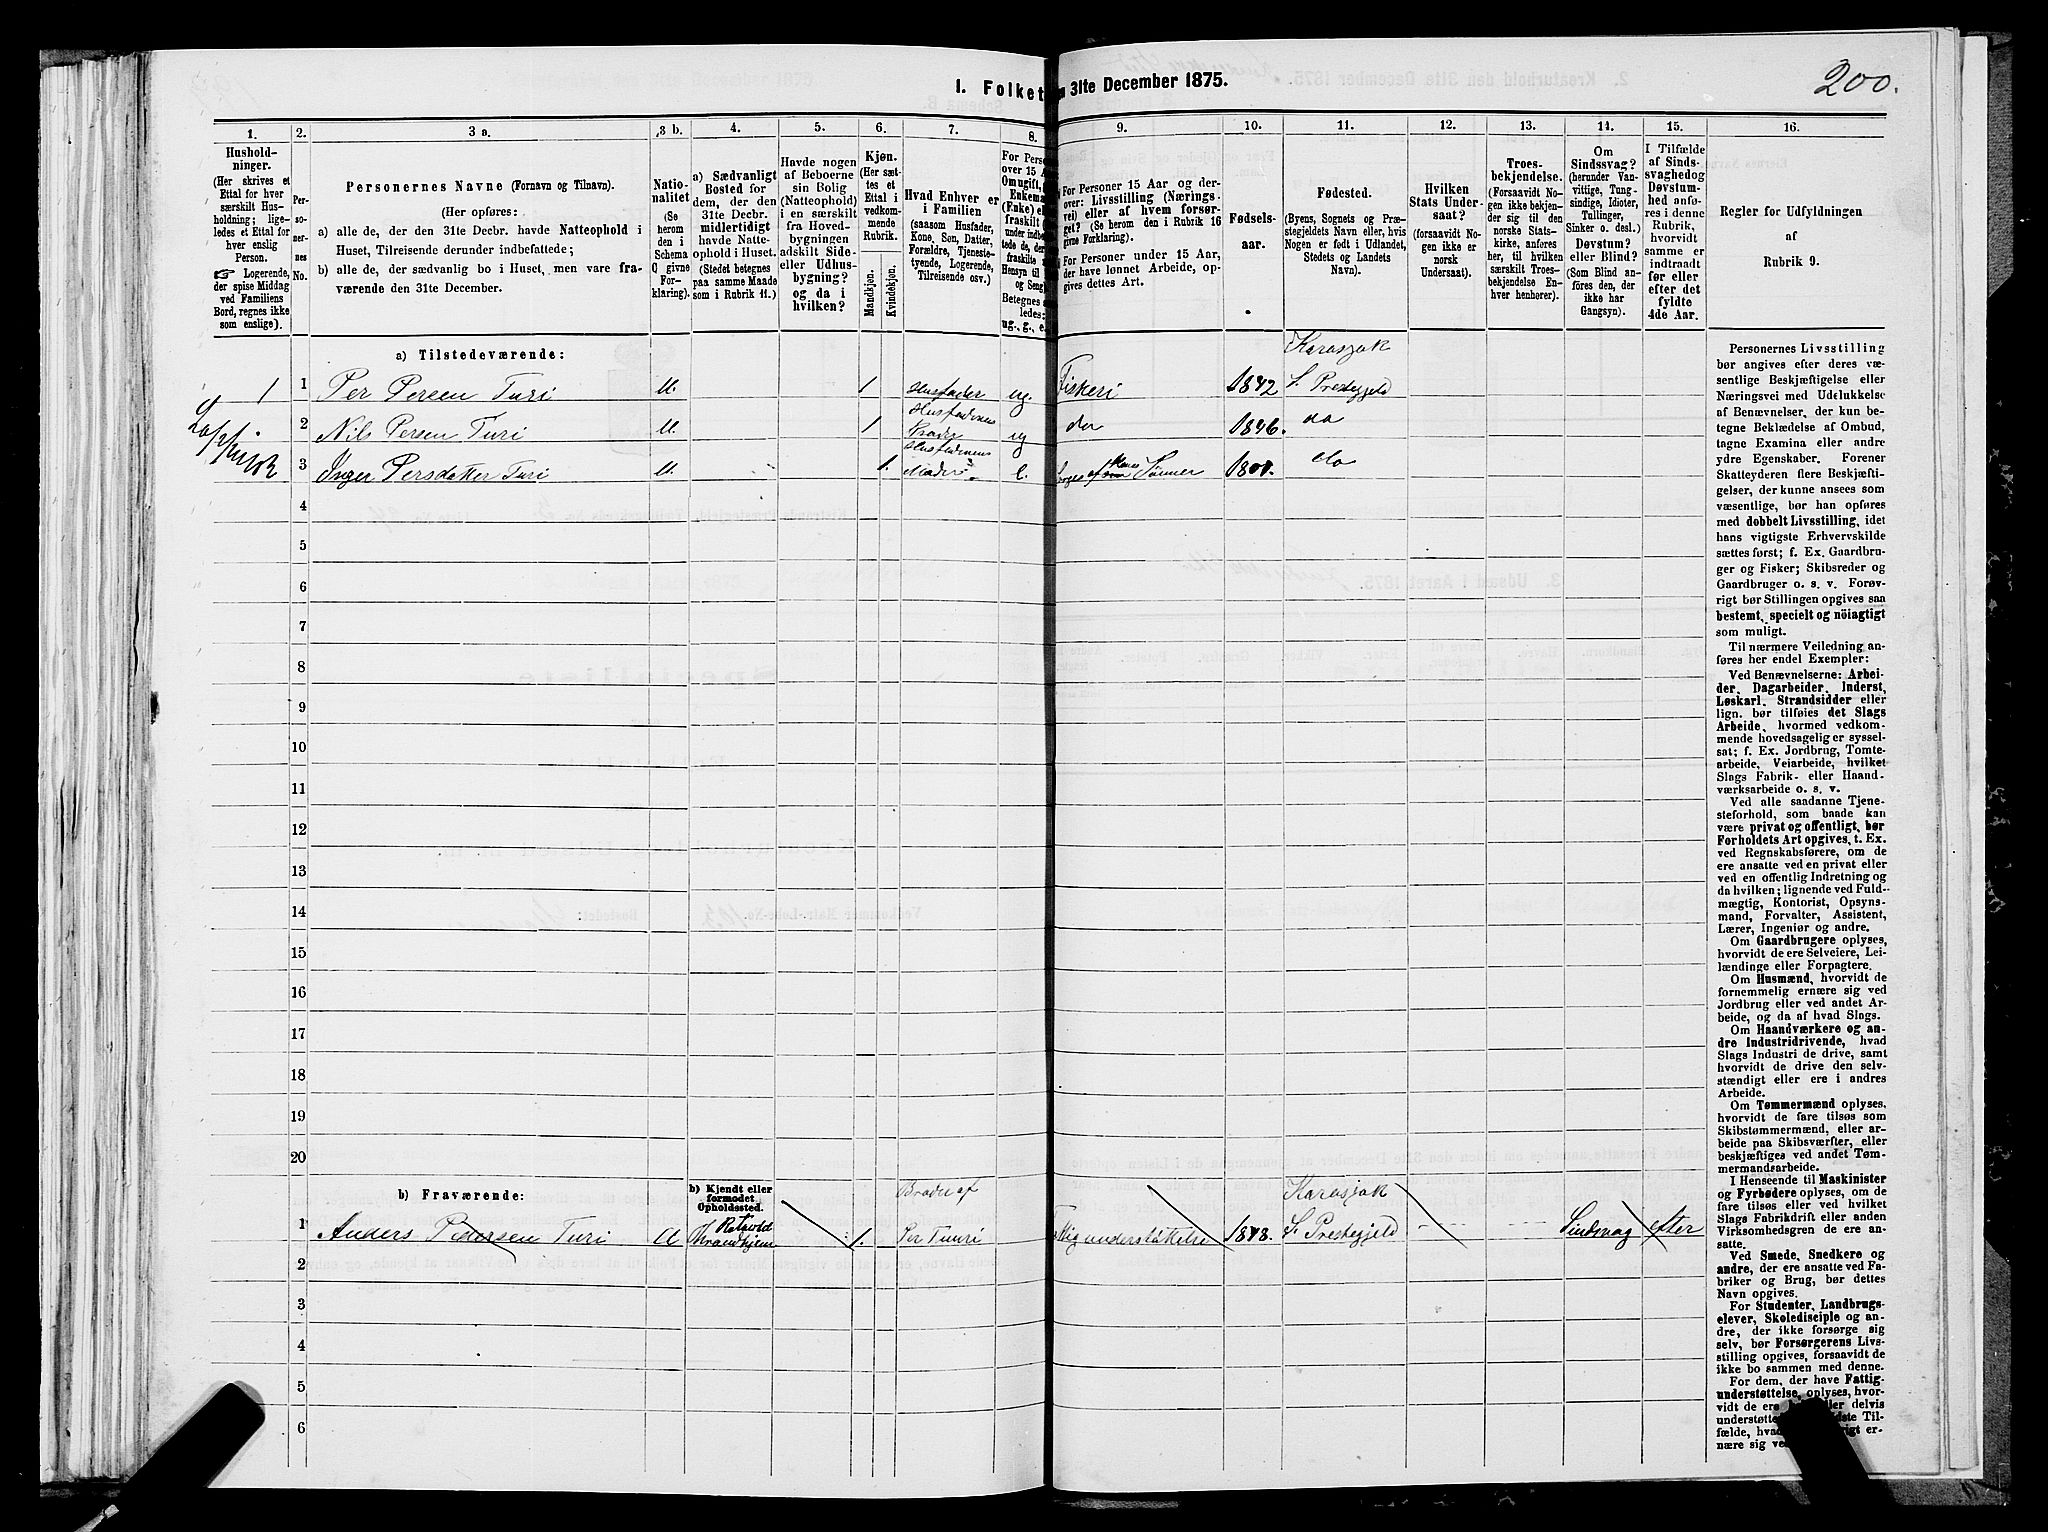 200.
I. Folket
31te December 1875.
1.
2.
3 a.
3 b.
4.
5.
6.
7.
8.
9.
10.
11.
12.
13.
14.
15.
16.
Husholdninger.
(Her skrives et
Ettal for hver
særskilt Husholdning; ligeledes et Ettal for
hver enslig
Person.
☞ Logerende,
der spise Middag
ved Familiens
Bord, regnes ikke
som enslige).
Personernes
No.
Personernes Navne (Fornavn og Tilnavn).
(Her opføres:
a) alle de, der den 31te Decbr. havde Natteophold i
Huset, Tilreisende derunder indbefattede;
b) alle de, der sædvanlig bo i Huset, men vare fraværende den 31te December.
Nationalitet
(Se
herom
den i
Schema
C givne
Forklaring).
a) Sædvanligt
Bosted for
dem, der den
31te Decbr.
midlertidigt
havde Natteophold i Huset.
(Stedet betegnes
paa samme Maade
som i Rubrik 11.)
Havde nogen
af Beboerne
sin Bolig
(Natteophold)
i en særskilt
fra Hovedbygningen
adskilt Side-
eller Udhusbygning?
og da i
hvilken?
Kjøn.
(Her sættes et
Ettal i
vedkommende
Rubrik.
Mandkjøn.
Kvindekjøn.
Hvad Enhver er
i Familien
(saasom Husfader,
Kone, Søn, Datter,
Forældre, Tjenestetyende, Logerende,
Tilreisende osv.)
For Perso
over 15 A
Omugift,
Enkema
(Enke) el
fraskilt
Betegnes
ledes:
ug., g., e.
For Personer 15 Aar og derover: Livsstilling (Næringsvei) eller af hvem forsørget? (Se herom den i Rubrik 16
givne Forklaring).
For Personer under 15 Aar,
der have lønnet Arbeide, opgives dettes Art.
Fødselsaar.
Fødested.
(Byens, Sognets og Præstegjeldets Navn eller, hvis
Nogen er født i Udlandet,
Stedets og Landets
Navn).
Hvilken
Stats Undersaat?
(forsaavidt Nogen ikke er
norsk
Undersaat).
Troesbekjendelse.
(Forsaavidt Nogen ikke bekjender sig til den
norske Statskirke, anføres
her, til hvilken
særskilt Troesbekjendelse Enhver henhører).
Om
Sindssvag?
(herunder Vanvittige, Tungsindige, Idioter,
Tullinger,
Sinker o. desl.)
Døvstum?
eller Blind?
(Som Blind anføres den, der
ikke har
Gangsyn).
I Tilfælde
af Sindssvaghedog
Døvstumhed anføres i denne
Rubrik,
hvorvidt
samme er
indtraadt
før eller
efter det
fyldte
4de Aar.
Regler for Udfyldningen
af
Rubrik 9.
a) Tilstedeværende:
Karasjok
1 1 Per Persen Turi U. 1 Husfader ug. Fiskeri 1842 S. Prestegjeld
2 Nils Persen Turi U. 1 Husfaderens Broder ug do 1846. do
3 Inger Persdatter Turi U. 1. Husfaderens Moder e. af Sønner 1801. do
4
5
6
7
8
9
10
11
12
13
14
15
16
17
18
19
20
b) Fraværende:
b) Kjendt eller
formodet
Opholdssted.
Broder af
Karasjok
1 Anders Pedersen Turi U Rotvold Trondhjem 1. Per Tuuri Fattigunderstøttelse 1848. S. Prestegjeld Sindssvag efter
2
3
4
5
6
Personernes Livsstilling
bør angives efter deres væsentlige Beskjæftigelse eller
Næringsvei med Udelukkelse
af Benævnelser, der kun betegne Beklædelse af Ombud,
tagne Examina eller andre
ydre Egenskaber. Forener
Skatteyderen flere Beskjæftigelser, der kunne ansees som
væsentlige, bør han opføres
med dobbelt Livsstilling, idet
hans vigtigste Erhvervskilde
sættes først; f. Ex. Gaardbruger og Fisker; Skibsreder og
Gaardbruger o. s. v. Forøvrigt bør Stillingen opgives saa
bestemt, specielt og nöiagtigt
som muligt.
Til nærmere Veiledning anføres her endel Exempler:
Ved Benævnelserne: Arbeider, Dagarbeider, Inderst,
Løskarl, Strandsidder eller
lign. bør tilføies det Slags
Arbeide, hvormed vedkommende hovedsagelig er sysselsat; f. Ex. Jordbrug, Tomtearbeide, Veiarbeide, hvilket
Slags Fabrik- eller Haandværksarbeide o. s. v.
Ved alle saadanne Tjenesteforhold, som baade kan
være privat og offentligt, bør
Forholdets Art opgives, t. Ex.
ved Regnskabsførere, om de
ere ansatte ved en privat eller
ved en offentlig Indretning og
da hvilken; lignende ved Fuldmægtig, Kontorist, Opsynsmand, Forvalter, Assistent,
Lærer, Ingeniør og andre.
Om Gaardbrugere oplyses,
hvorvidt de ere Selveiere, Leilændinge eller Forpagtere.
Om Husmænd, hvorvidt de
fornemmelig ernære sig ved
Jordbrug eller ved andet Arbeide, og da af hvad Slags.
Om Haandværkere og andre Industridrivende, hvad
Slags Industri de drive, samt
hvorvidt de drive den selvstændigt eller ere i andres
Arbeide.
Om Tømmermænd oplyses,
hvorvidt de fare tilsøs som
Skibstømmermænd, eller arbeide paa Skibsværfter, eller
beskjæftiges ved andet Tømmermandsarbeide.
I Henseende til Maskinister
og Fyrbødere oplyses, om de
fare tilsøs eller ved hvilket
Slags Fabrikdrift eller anden
Virksomhedsgren de ere ansatte.
Ved Smede, Snedkere og
andre, der ere ansatte ved Fabriker og Brug, bør dettes
Navn opgives.
For Studenter, Landbrugselever, Skoledisciple og andre, der ikke forsørge sig
selv, bør Forsørgerens Livsstilling opgives, forsaavidt de
ikke bo sammen med denne.
For dem, der have Fattigunderstøttelse, oplyses, hvorvidt de ere